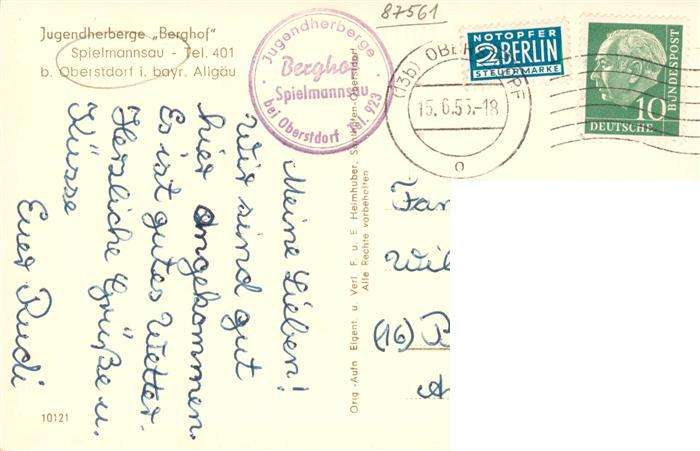 Jugendherberge „Berghof"
Spielmannsau - Tel. 401
b. Oberstdorf i. bayr. Allgäu
87561
Jugendherberge
Berghof
Spielmannsau
bei Oberstdorf Tel. 923
(13b) OBERSTDORF
15.6.55.-18
o
NOTOPFER
2 BERLIN
STEUERMARKE
10
DEUTSCHE
BUNDESPOST
Meine Lieben!
Wir sind gut
hier angekommen.
Es ist gutes Wetter.
Herzliche Grüße u.
Küsse
Euer Rudi
Orig.-Aufn Eigent. u. Verl. F. u. E. Heimhuber, Oberstdorf
Alle Rechte vorbehalten
Fam
Wil
(16)
10121